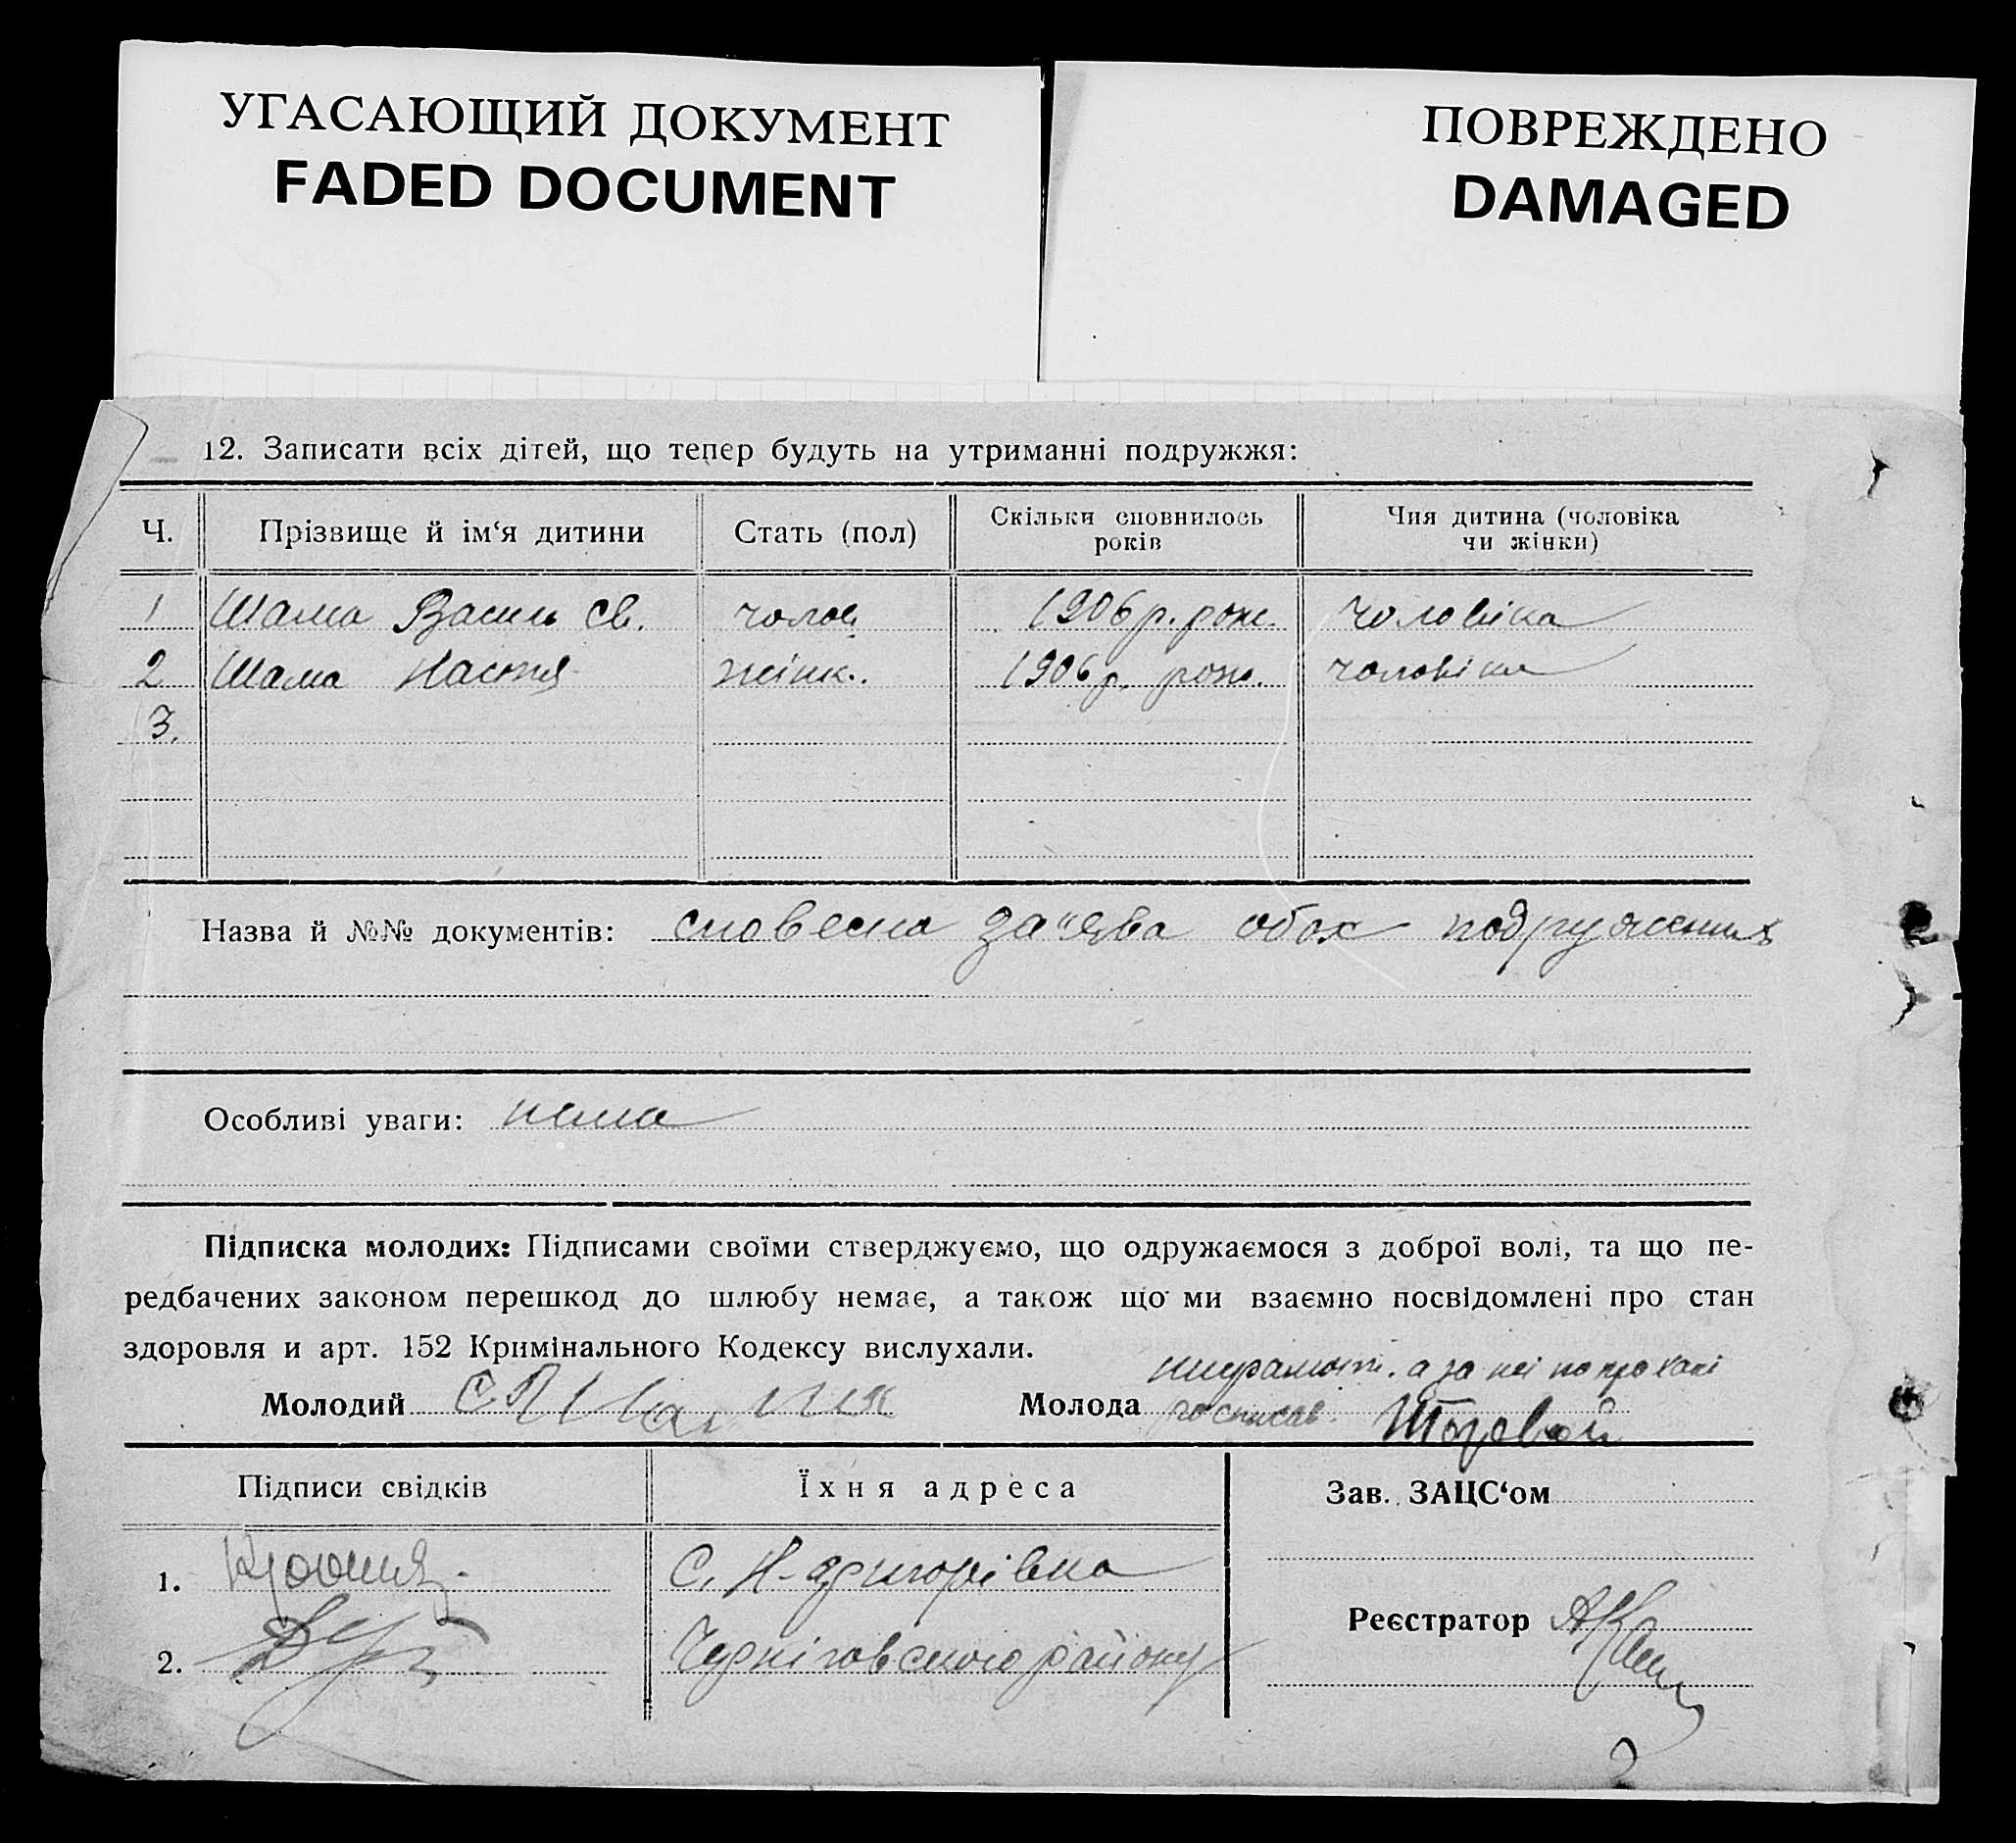 УГАСАЮЩИЙ ДОКУМЕНТ
FADED DOCUMENT
ПОВРЕЖДЕНО
DAMAGED
12. Записати всіх дітей, що тепер будуть на утриманні подружжя:
Ч. Прізвище й ім‘я дитини Стать (пол) Скільки сповнилось років Чия дитина (чоловіка чи жінки)
1 Шама Василь Св. чолов. 1906 р. рож. чоловіка
2 Шама Настя жінк. 1906 р. рож. чоловіка
3.
Назва й №№ документів: словесна за"ява обох подружених
Особливі уваги: нема
Підписка молодих: Підписами своїми стверджуємо, що одружаємося з доброї волі, та що пе-
редбачених законом перешкод до шлюбу немає, а також що ми взаємно посвідомлені про стан
здоровля и арт. 152 Кримінального Кодексу вислухали.
неграмотн. а за неї по прохані
Молодий Молода росписав.
Підписи свідків Їхня адреса Зав. ЗАЦС‘ом
1. С. Н-григорівка
Реєстратор
2. Черніговського району
2